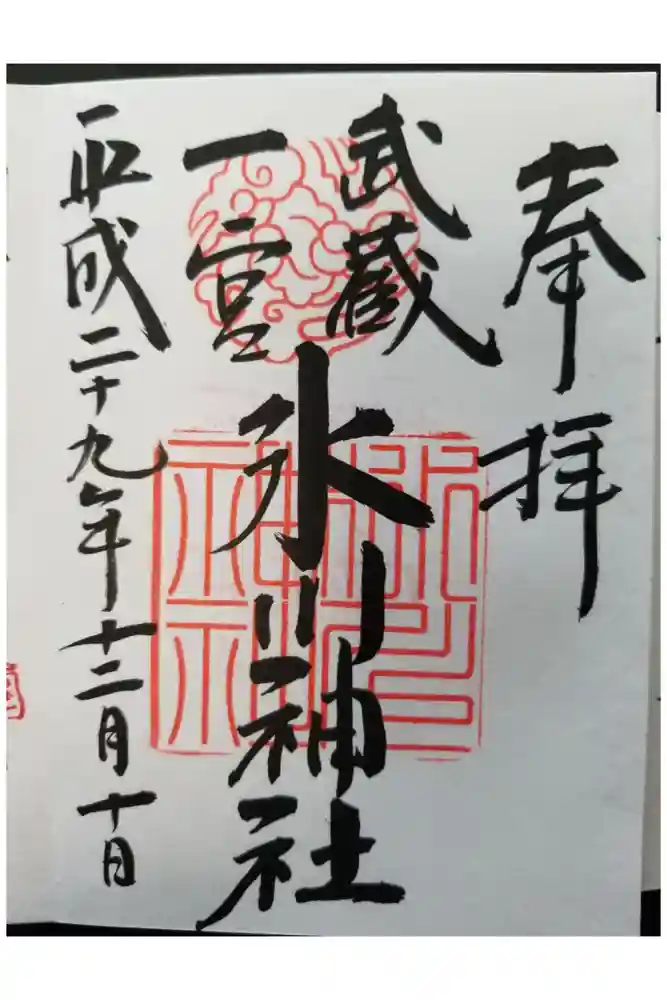 奉拝
武蔵
一宮
氷川神社
平成二十九年十二月十日